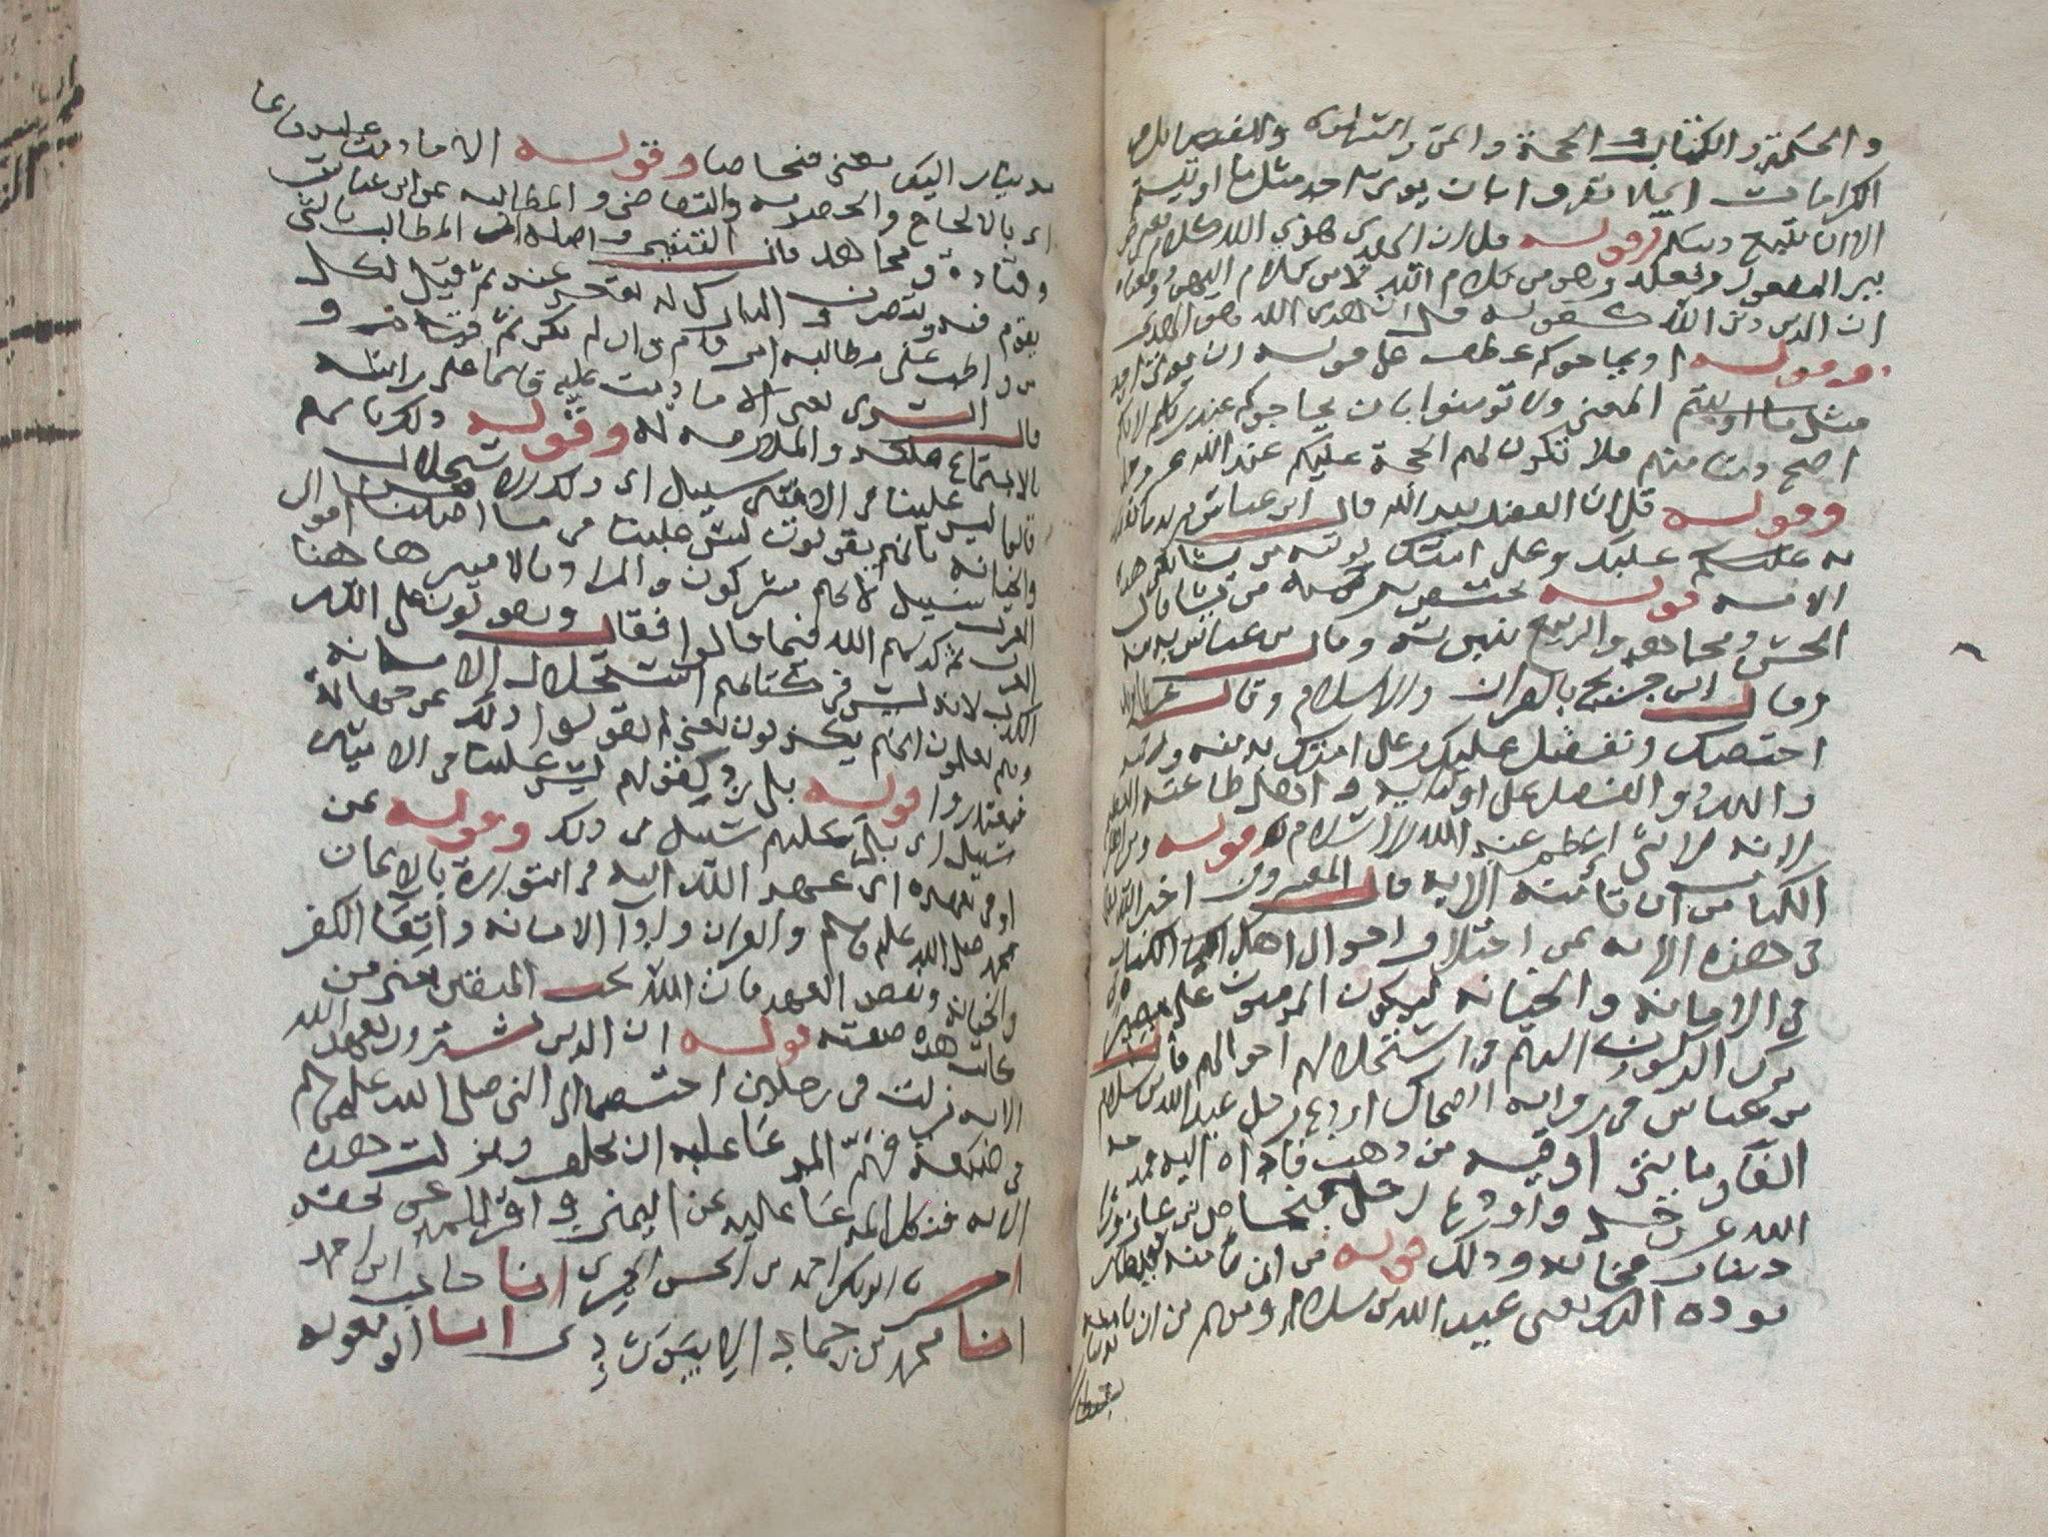 والحكمة والكتاب والحجة والمن والسلوى والفضايل و
الكرامات اي لا تقروا بان يوتى احد مثل ما اوتيتم
الا لمن تبع دينكم وقوله قل ان الهدى هدى الله كلام معترض
بين المفعول وفعله وهو من كلام الله لا من كلام اليهود ومعناه
ان الدين دين الله كقوله قل ان هدى الله هو الهدى
وقوله او يحاجوكم عطف على قوله ان يوتى احد
مثل ما اوتيتم المعنى ولا تومنوا بان يحاجوكم عند ربكم لانكم
اصح دينا منهم فلا تكون لهم الحجة عليكم عند الله عز وجل
وقوله قل ان الفضل بيد الله قال ابن عباس يريد ما تفضل
به عليك وعلى امتك يوتيه من يشا يعني هذه
الامة قوله يختص برحمته من يشا قال
الحسن ومجاهد والربيع بنبوته وقال ابن عباس بدينه
وقال ابن جريج بالقران والاسلام وقال عطا
اختصك وتفضل عليك وعلى امتك بدينه
والله ذو الفضل على اوليايه واهل طاعته العظيم
لانه لا شي اعظم عند الله من الاسلام قوله ومن اهل
الكتاب من ان تامنه الاية قال المفسرون اخبر الله تعالى
في هذه الاية عن اختلاف احوال اهل الكتاب
في الامانة والخيانة ليكون المومنون على بصيرة
من ترك الركون اليهم واستحلالهم اموالهم قال
بن عباس في رواية الضحاك اودع رجل عبد الله بن سلام
الفا ومايتي اوقية من ذهب فاداه اليه فمدحه
الله عز وجل واودع رجل فنحاص بن عازورا
دينارا فخانه وذلك قوله من ان تامنه بقنطار
يوده اليك يعني عبد الله بن سلام ومنهم من ان تامنه
بدينار
بدينار اليك يعني فنحاصا وقوله الا ما دمت عليه قايما
اي بالالحاح والخصومة والتقاضي والمطالبة عن ابن عباس
وقتادة ومجاهد قال القتيبي واصله ان المطالب بالشي
يقوم فيه ويتصرف والتارك له يقعد عنه ثم قيل لكل
من واظب على مطالبة امر قام به وان لم يكن ثم قيام
قال السدي يعني الا ما دمت عليه قايما على راسه
بالاجتماع معه والملازمة له وقوله ذلك بانهم
قالوا ليس علينا في الاميين سبيل اي ذلك الاستحلال
والخيانة بانهم يقولون ليس علينا في ما اصبنا من اموال
العرب سبيل لانهم مشركون والمراد بالاميين ها هنا
العرب ثم كذبهم الله فيما قالوا فقال ويقولون على الله
الكذب لانه ليس في كتابهم استحلال الامانة
وهم يعلمون انهم يكذبون يعني لم يقولوا ذلك عن جهالة
فيعتذروا قوله بلى رد لقولهم ليس علينا في الاميين
سبيل اي بلى عليهم سبيل في ذلك وقوله من
اوفى بعهده اي عهد الله اليه في التوراة بالايمان
بمحمد صلى الله عليه وسلم والقران وادا الامانة واتقا الكفر
والخيانة ونقض العهد فان الله يحب المتقين يعني من
كانت هذه صفته قوله ان الذين يشترون بعهد الله
الاية نزلت في رجلين اختصما الى النبي صلى الله عليه وسلم
في ضيعة فهم المدعا عليه ان يحلف ونزلت هذه
الاية فنكل المدعا عليه عن اليمين واقر للمدعي بحقه
اخبرنا ابو بكر احمد بن الحسن الحيري انا حاجب ابن احمد
انا محمد بن حماد الابيوردي انا ابو معوية